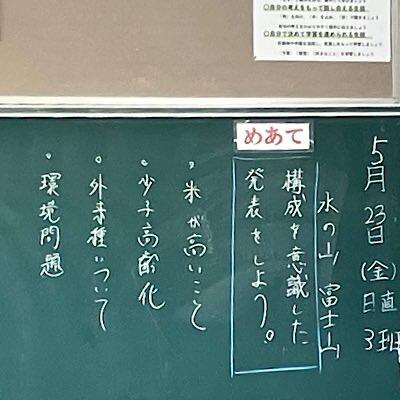 ○自分の考えをもって話し合える生徒
○自分で決めて学習を進められる生徒
5月23日(金)
日直 3班
水の山 富士山
めあて
構成を意識した
発表をしよう。
・米が高いこと
・少子高齢化
・外来種について
・環境問題